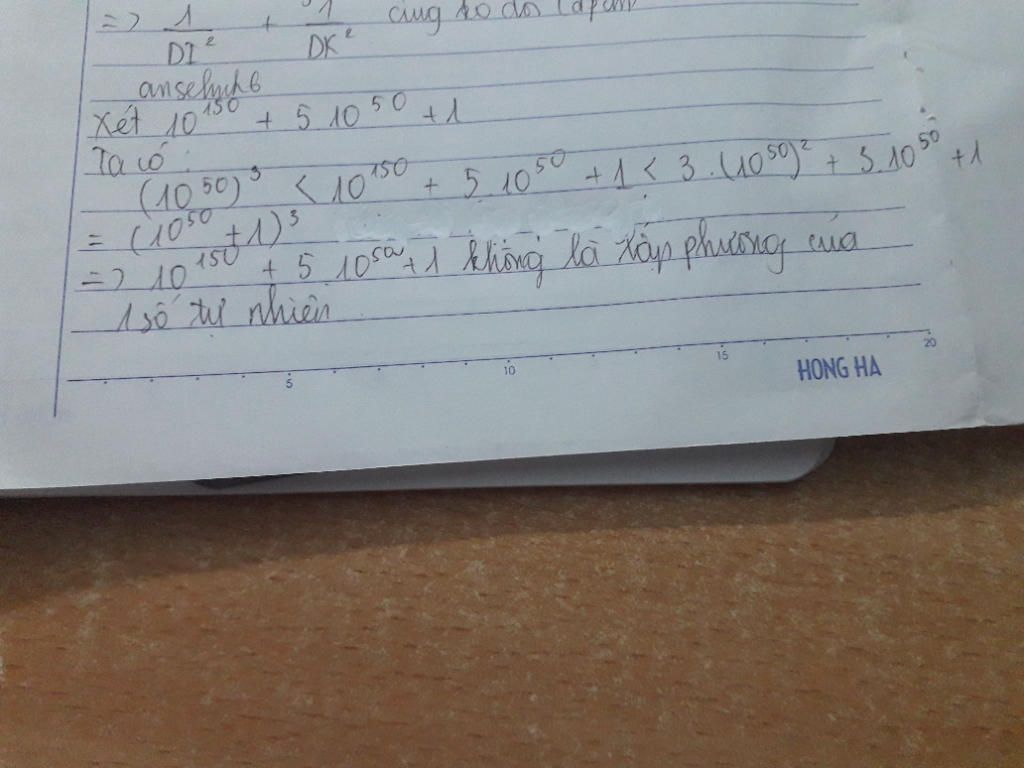 => 1/DI² + 1/DK² cũng ko đổi
Xét 10^150 + 5.10^50 + 1
Ta có:
(10^50)^3 < 10^150 + 5.10^50 + 1 < 3.(10^50)^2 + 3.10^50 + 1
= (10^50 + 1)^3
=> 10^150 + 5.10^50 + 1 không là lập phương của
1 số tự nhiên
5 10 15 20
HONG HA